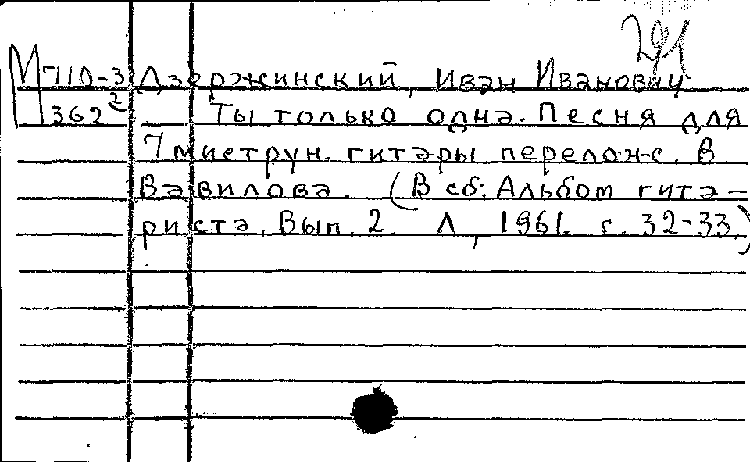 291
М 710-3 Дзержинский, Иван Иванович
362² Ты только одна. Песня для
7миструн. гитары перелож. В
Вавилова. (В сб: Альбом гита-
риста, Вып. 2. Л, 1961. с. 32-33.)